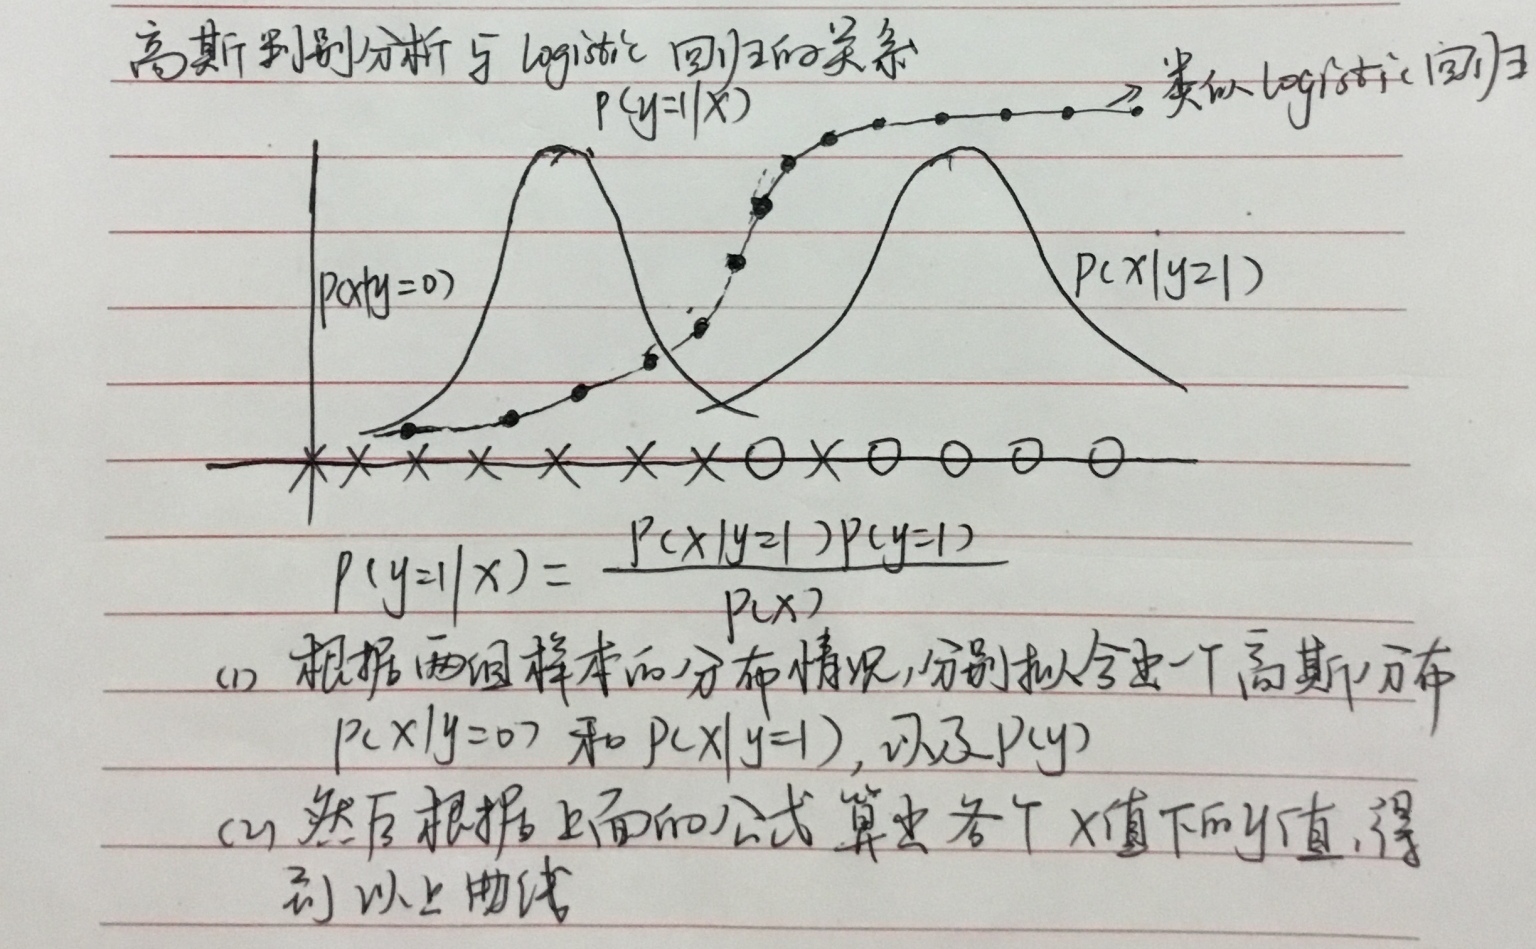 高斯判别分析与logistic回归的关系
P(y=1|X)
类似logistic回归
P(x|y=0)
P(X|y=1)
P(y=1|X) = P(X|y=1)P(y=1) / P(X)
(1) 根据两组样本的分布情况,分别拟合出一个高斯分布
P(X|y=0) 和 P(X|y=1), 以及P(y)
(2) 然后根据上面的公式算出各个X值下的y值,得
到以上曲线